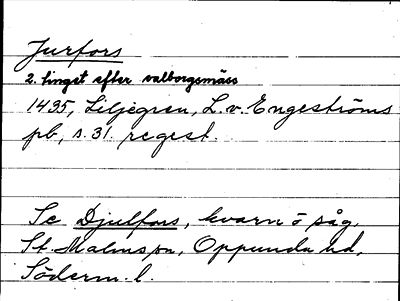 Jurfors
2. tinget efter valborgsmäss
1495, Liljegren, L. v. Engeströms
pb, s. 31. regest.
Se Djulfors, kvarn o såg,
St. Malms sn, Oppunda hd,
Söderm. l.